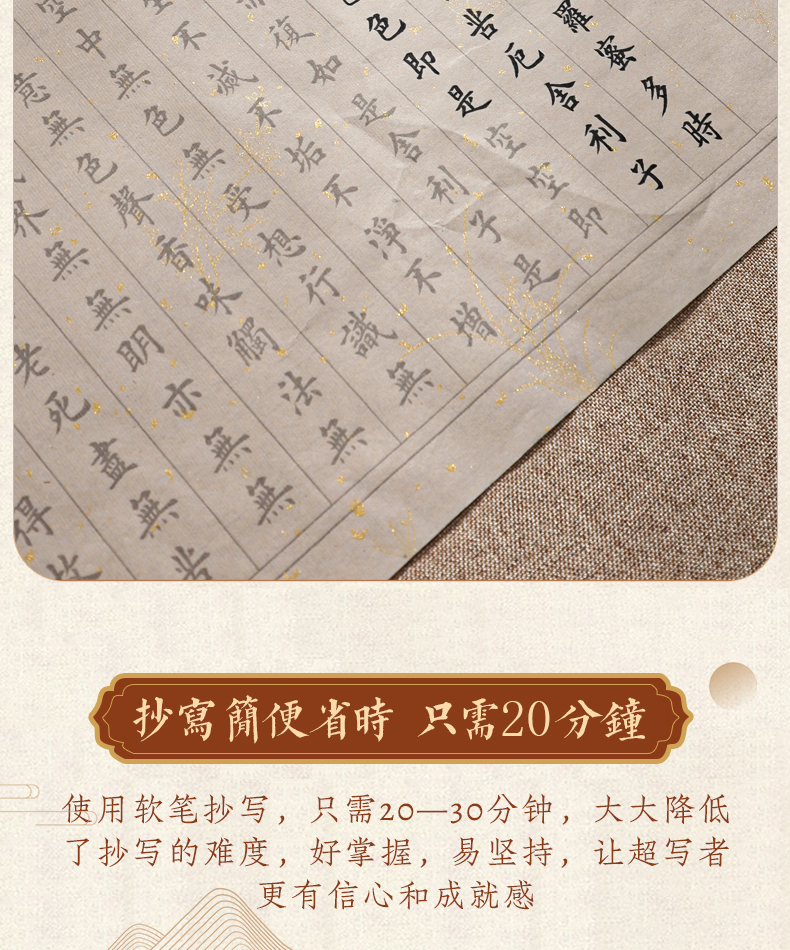 羅蜜多時
苦厄舍利子
色即是空空即
復如是舍利子是
不滅不垢不淨不增
空中無色無受想行識無
意無色聲香味觸法無
界無無明亦無無
老死盡無苦
得故
抄寫簡便省時 只需20分鐘
使用软笔抄写，只需20—30分钟，大大降低
了抄写的难度，好掌握，易坚持，让超写者
更有信心和成就感